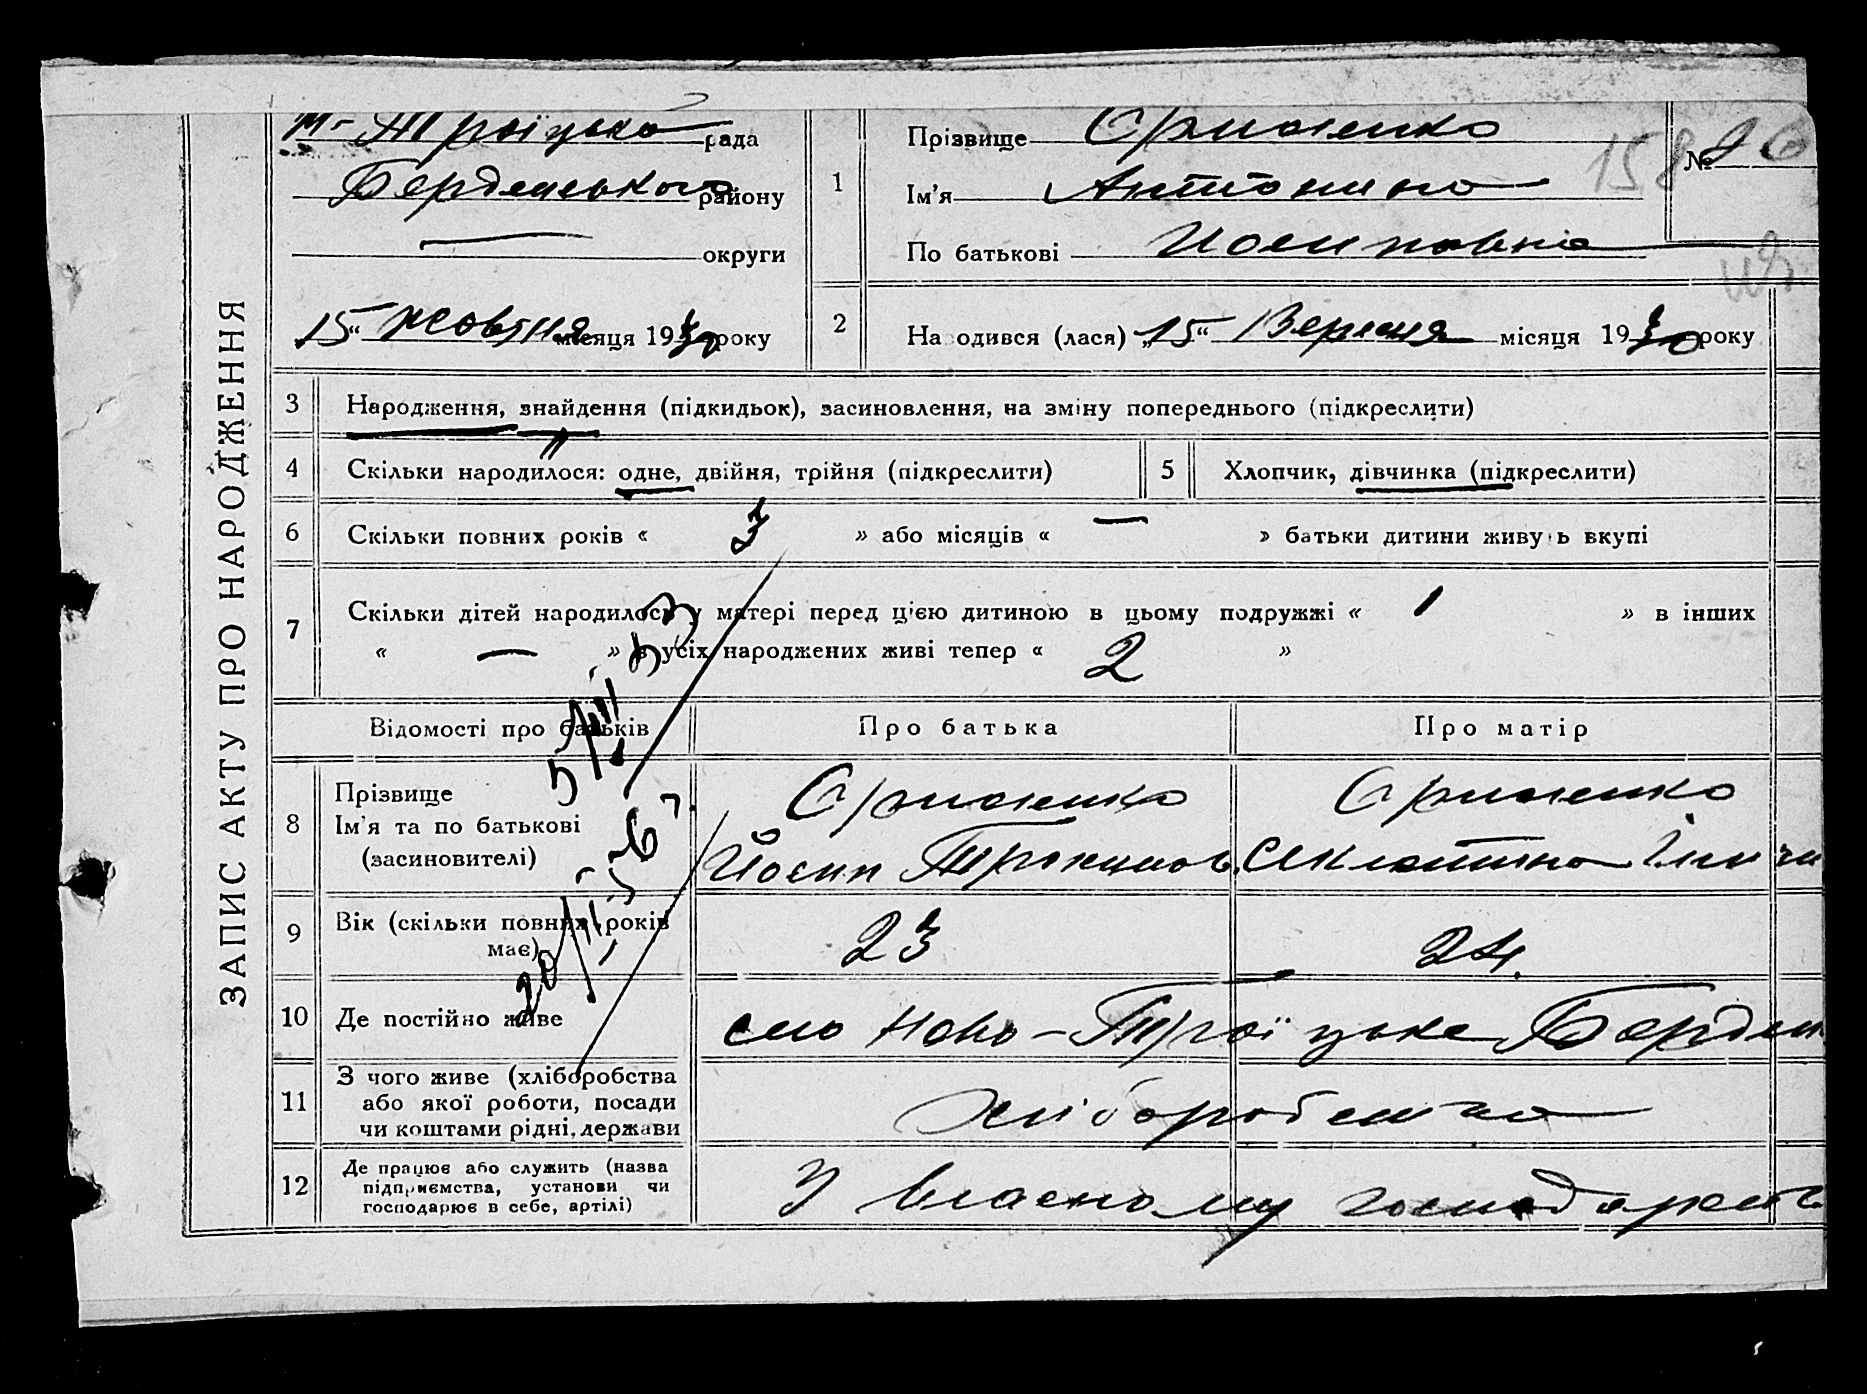 ЗАПИС АКТУ ПРО НАРОДЖЕННЯ
Н-Троїцька рада
Бердянського району
— округи
„15“ жовтня місяця 1930 року
1
Прізвище
Ім'я Антонина
По батькові Йосиповна
158
№
2
Народився (лася) „15“ Вересня місяця 1930 року
3 Народження, знайдення (підкидьок), засиновлення, на зміну попереднього (підкреслити)
4 Скільки народилося: одне, двійня, трійня (підкреслити)
5 Хлопчик, дівчинка (підкреслити)
6 Скільки повних років « 3 » або місяців « — » батьки дитини живуть вкупі
7 Скільки дітей народилось у матері перед цією дитиною в цьому подружжі « 1 » в інших
« — » з усіх народжених живі тепер « 2 »
Відомості про батьків
Про батька
Про матір
8 Прізвище
Ім'я та по батькові
(засиновителі)
Йосип
9 Вік (скільки повних років має)
23
24.
10 Де постійно живе
село Ново-Троїцьке Бердян
11 З чого живе (хліборобства
або якої роботи, посади
чи коштами рідні, держави
Хліборобство
12 Де працює або служить (назва
підприємства, установи чи
господарює в себе, артілі)
У власному господарств